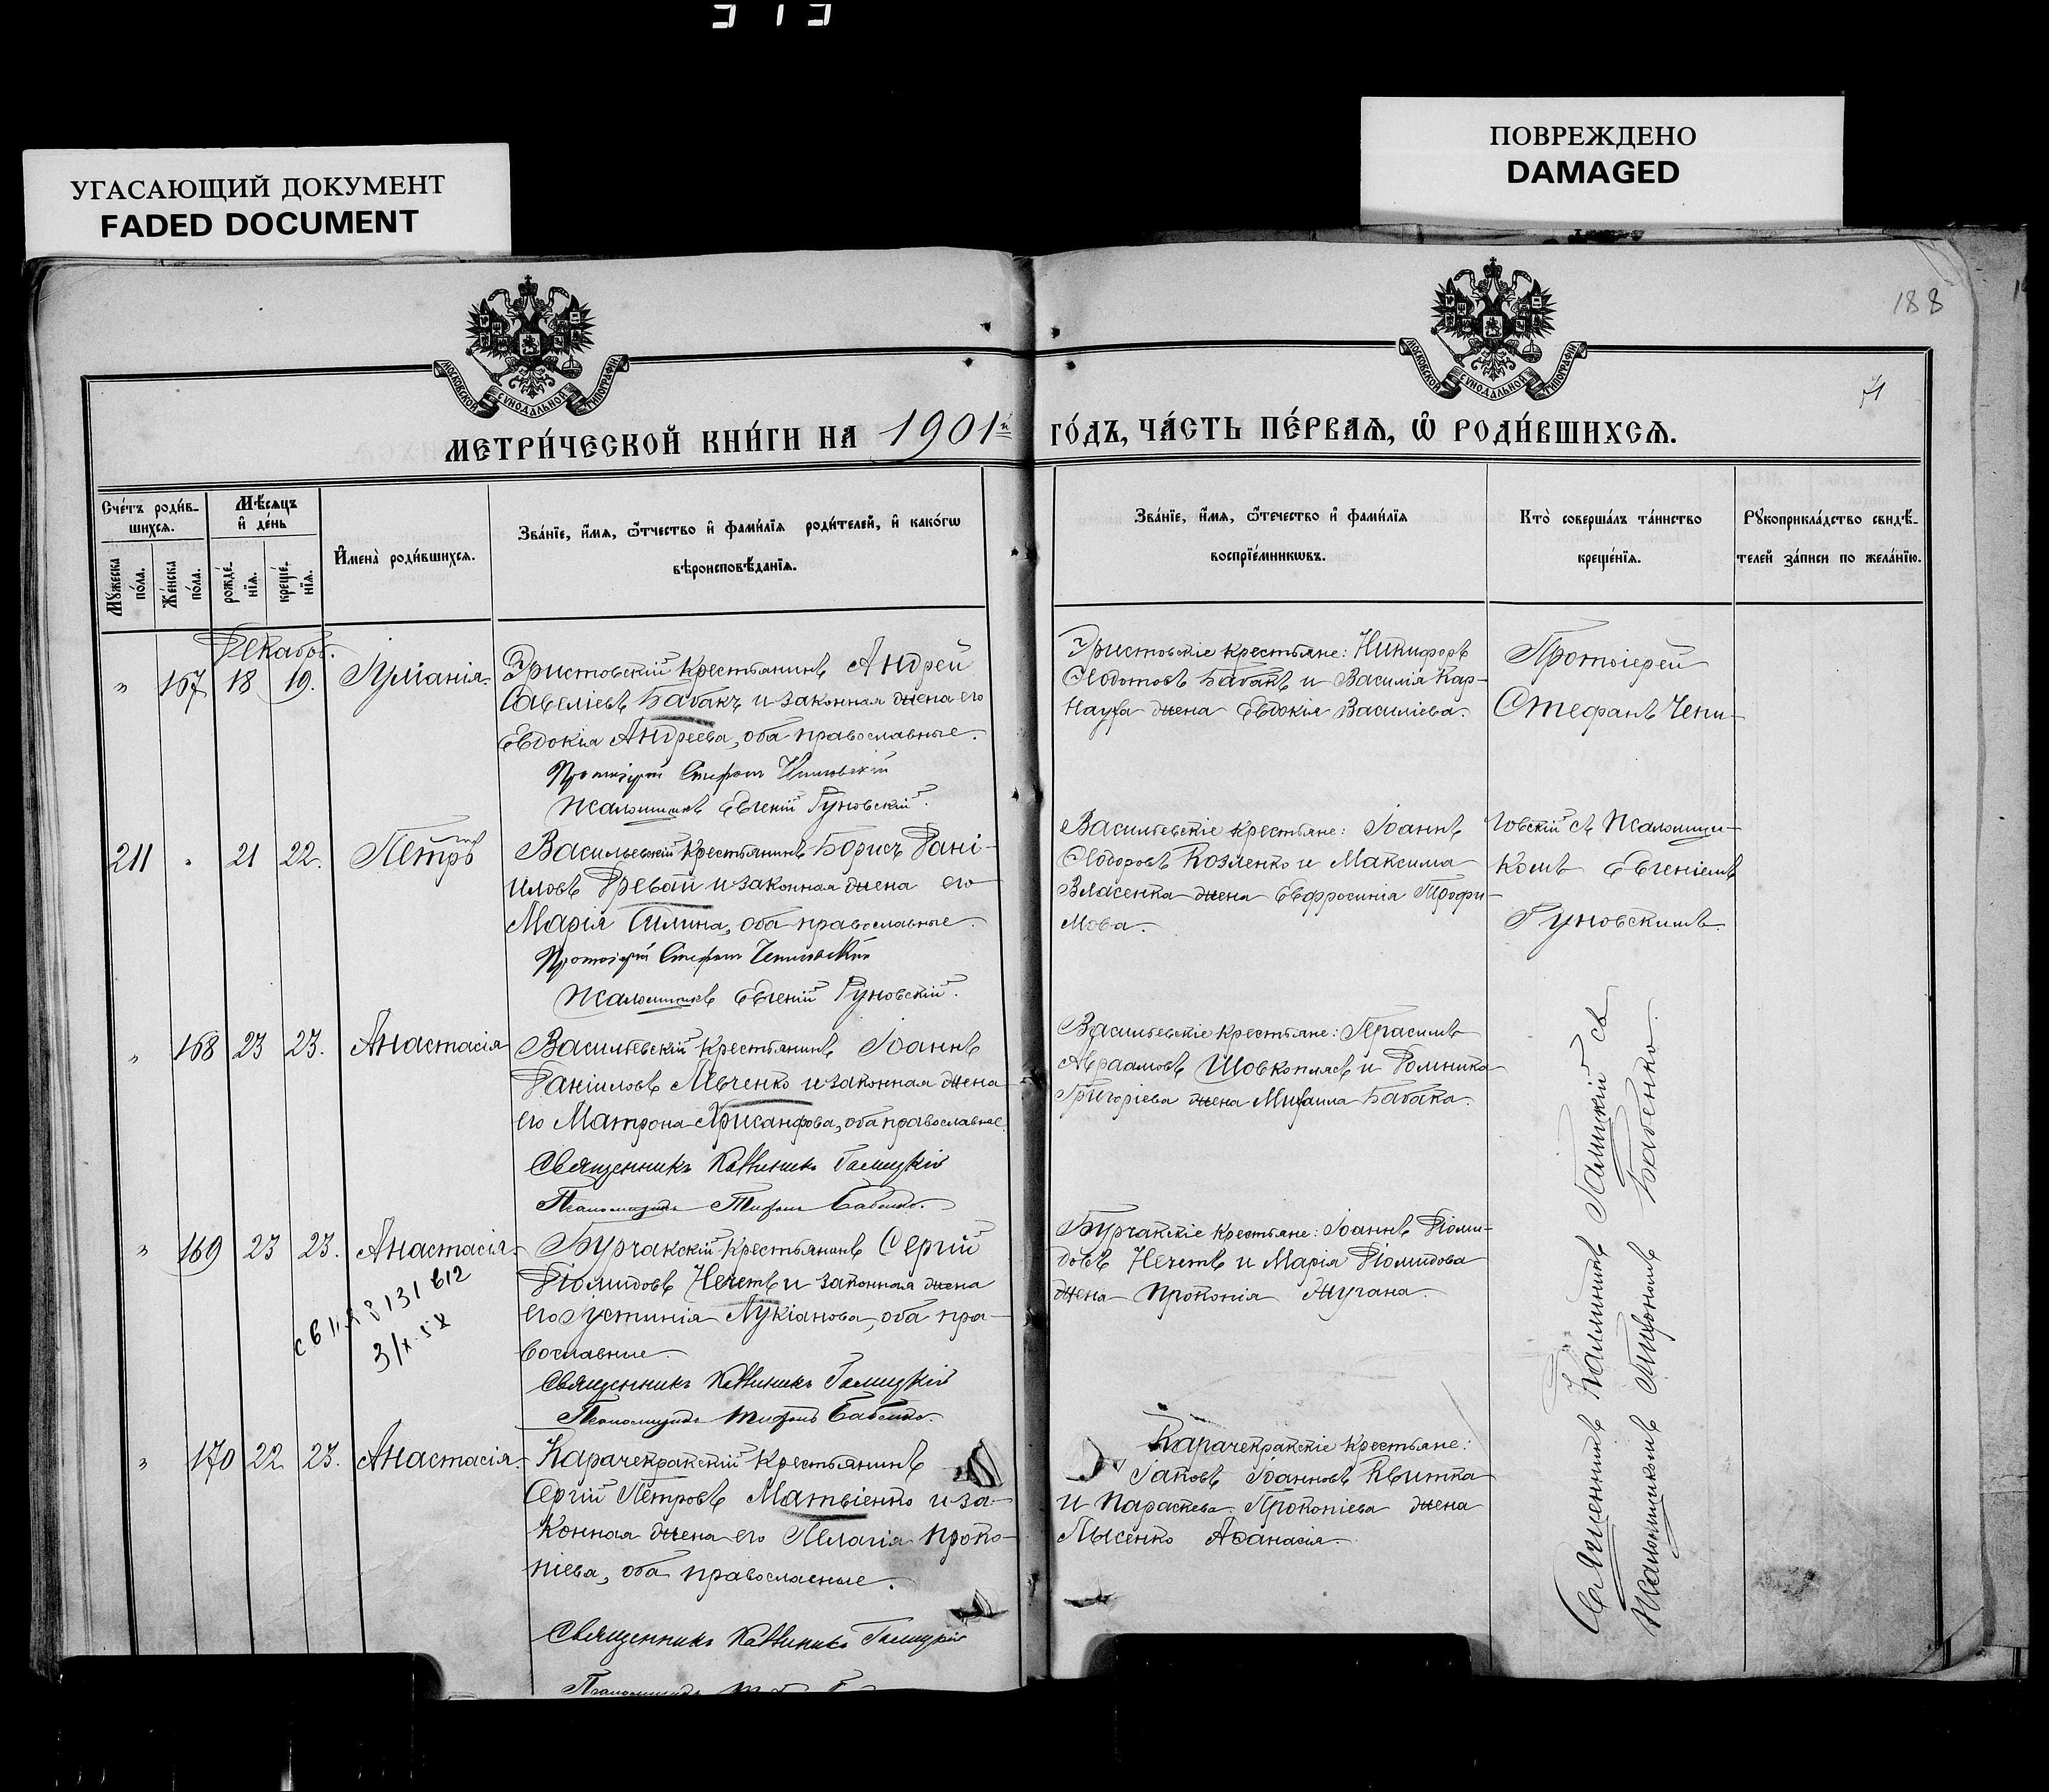 УГАСАЮЩИЙ ДОКУМЕНТ
FADED DOCUMENT
ПОВРЕЖДЕНО
DAMAGED
188
МОСКОВСКОЙ СѴНОДАЛЬНОЙ ТИПОГРАФІИ
МОСКОВСКОЙ СѴНОДАЛЬНОЙ ТИПОГРАФІИ
МЕТРИ́ЧЕСКОЙ КНИ́ГИ НА 1901й ГО́ДЪ, ЧА́СТЬ ПЕ́РВАѦ, Ѡ҆ РОДИ́ВШИХСѦ.
Сче́тъ роди́в-
шихсѧ.
Мꙋжеска по́ла.
Же́нска по́ла.
Мѣ́сѧцъ
и҆ де́нь
рожде́нїѧ.
креще́нїѧ.
И҆мена̀ роди́вшихсѧ.
Зва́нїе, и҆́мѧ, ѻ҆́тчество и҆ фами́лїѧ роди́телей, и҆ како́гѡ
вѣроисповѣ́данїѧ.
Зва́нїе, и҆́мѧ, ѻ҆́течество и҆ фами́лїѧ
воспрїе́мникѡвъ.
Кто̀ соверша́лъ та́инство
креще́нїѧ.
Рꙋкоприкла́дство свидѣ́-
телей за́писи по жела́нїю.
Декабр.
" 167 18 19. Іуліанія.
Эристовскій крестьянинъ Андрей
Савеліевъ Бабакъ и законная жена его
Евдокія Андреева, оба православные.
Протоіерей Стефанъ Чепиговскій
Псаломщикъ Евгеній Руновскій.
Эристовскіе крестьяне: Никифоръ
Ѳедотовъ Бабакъ и Василія Кар-
науха жена Евдокія Василіева.
Протоіерей
Стефанъ Чепи-
211 " 21 22. Петръ
Васильевскій крестьянинъ Борисъ Дані-
иловъ Гревай и законная жена его
Марія Силина, оба православные.
Протоіерей Стефанъ Чепиговскій
Псаломщикъ Евгеній Руновскій.
Васильевскіе крестьяне: Іоаннъ
Ѳедоровъ Козленко и Максима
Власенка жена Евфросинія Трофи-
мова.
говскій съ Псаломщи-
комъ Евгеніемъ
Руновскимъ.
" 168 23 23. Анастасія
Васильевскій крестьянинъ Іоаннъ
Даніиловъ Ивченко и законная жена
его Матрона Хрисанфова, оба православные.
Священникъ Каллиникъ Галицкій
Псаломщикъ Тихонъ Бабенко.
Васильевскіе крестьяне: Герасимъ
Авраамовъ Шовкоплясъ и Домникія
Григоріева жена Михаила Бабака.
" 169 23 23. Анастасія.
Бурчакскій крестьянинъ Сергій
Діомидовъ Нечетъ и законная жена
его Іустинія Лукіанова, оба пра-
вославные.
Священникъ Каллиникъ Галицкій
Псаломщикъ Тихонъ Бабенко.
Бурчакскіе крестьяне: Іоаннъ Діоми-
довъ Нечетъ и Марія Діомидова
жена Прокопія
3/X 58
" 170 22 23. Анастасія.
Карачекракскій крестьянинъ
Сергій Петровъ Матвіенко и за-
конная жена его Пелагія Проко-
піева, оба православные.
Священникъ Каллиникъ Галицкій
Карачекракскіе крестьяне:
Іаковъ Іоанновъ Квитка
и Параскева Прокопіева жена
Лысенко Аѳанасія.
Священникъ Каллиникъ Галицкій съ
Псаломщикомъ Тихономъ Бабенко.